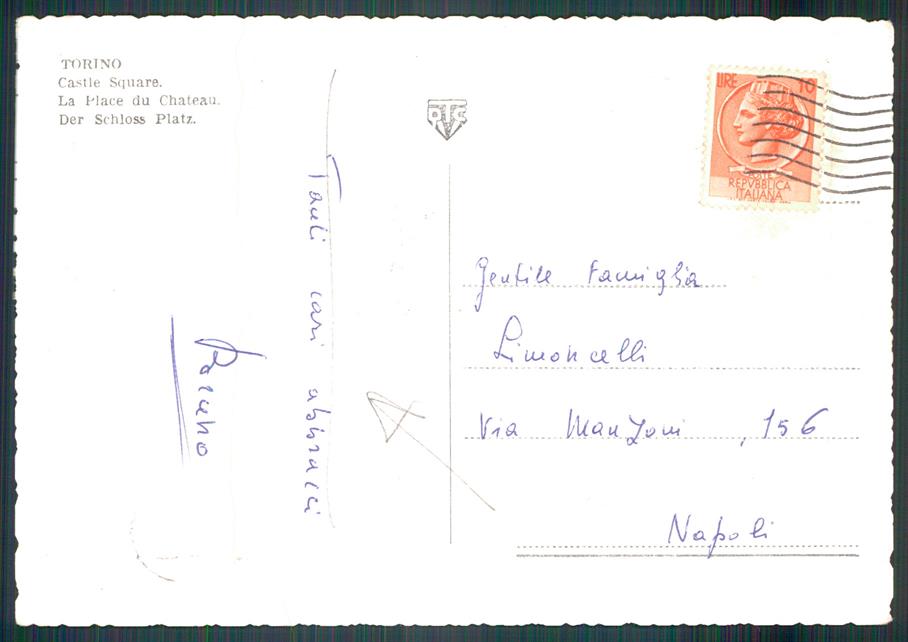 TORINO
Castle Square.
La Place du Chateau.
Der Schloss Platz.
Tanti cari abbracci
LIRE 10
REPVBBLICA
ITALIANA
Gentile Famiglia
Limoncelli
Via Manzoni, 156
Napoli